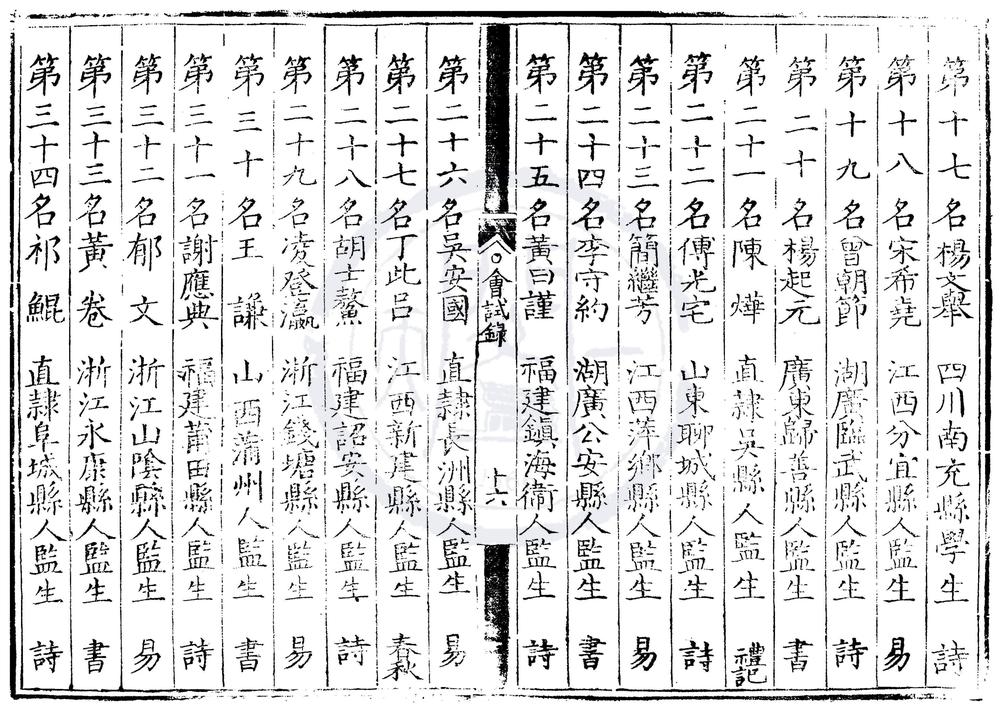 第十七名楊文舉 四川南充縣學生 詩
第十八名宋希堯 江西分宜縣人監生 易
第十九名曾朝節 湖廣臨武縣人監生 詩
第二十名楊起元 廣東歸善縣人監生 書
第二十一名陳燁 直隸吳縣人監生 禮記
第二十二名傅光宅 山東聊城縣人監生 詩
第二十三名簡繼芳 江西萍鄉縣人監生 易
第二十四名李守約 湖廣公安縣人監生 書
第二十五名黃曰謹 福建鎮海衛人監生 詩
會試錄 十六
第二十六名吳安國 直隸長洲縣人監生 易
第二十七名丁此呂 江西新建縣人監生 春秋
第二十八名胡士鰲 福建詔安縣人監生 詩
第二十九名凌登瀛 浙江錢塘縣人監生 易
第三十名王謙 山西蒲州人監生 書
第三十一名謝應典 福建莆田縣人監生 詩
第三十二名郁文 浙江山陰縣人監生 易
第三十三名黃卷 浙江永康縣人監生 書
第三十四名祁鯤 直隸阜城縣人監生 詩